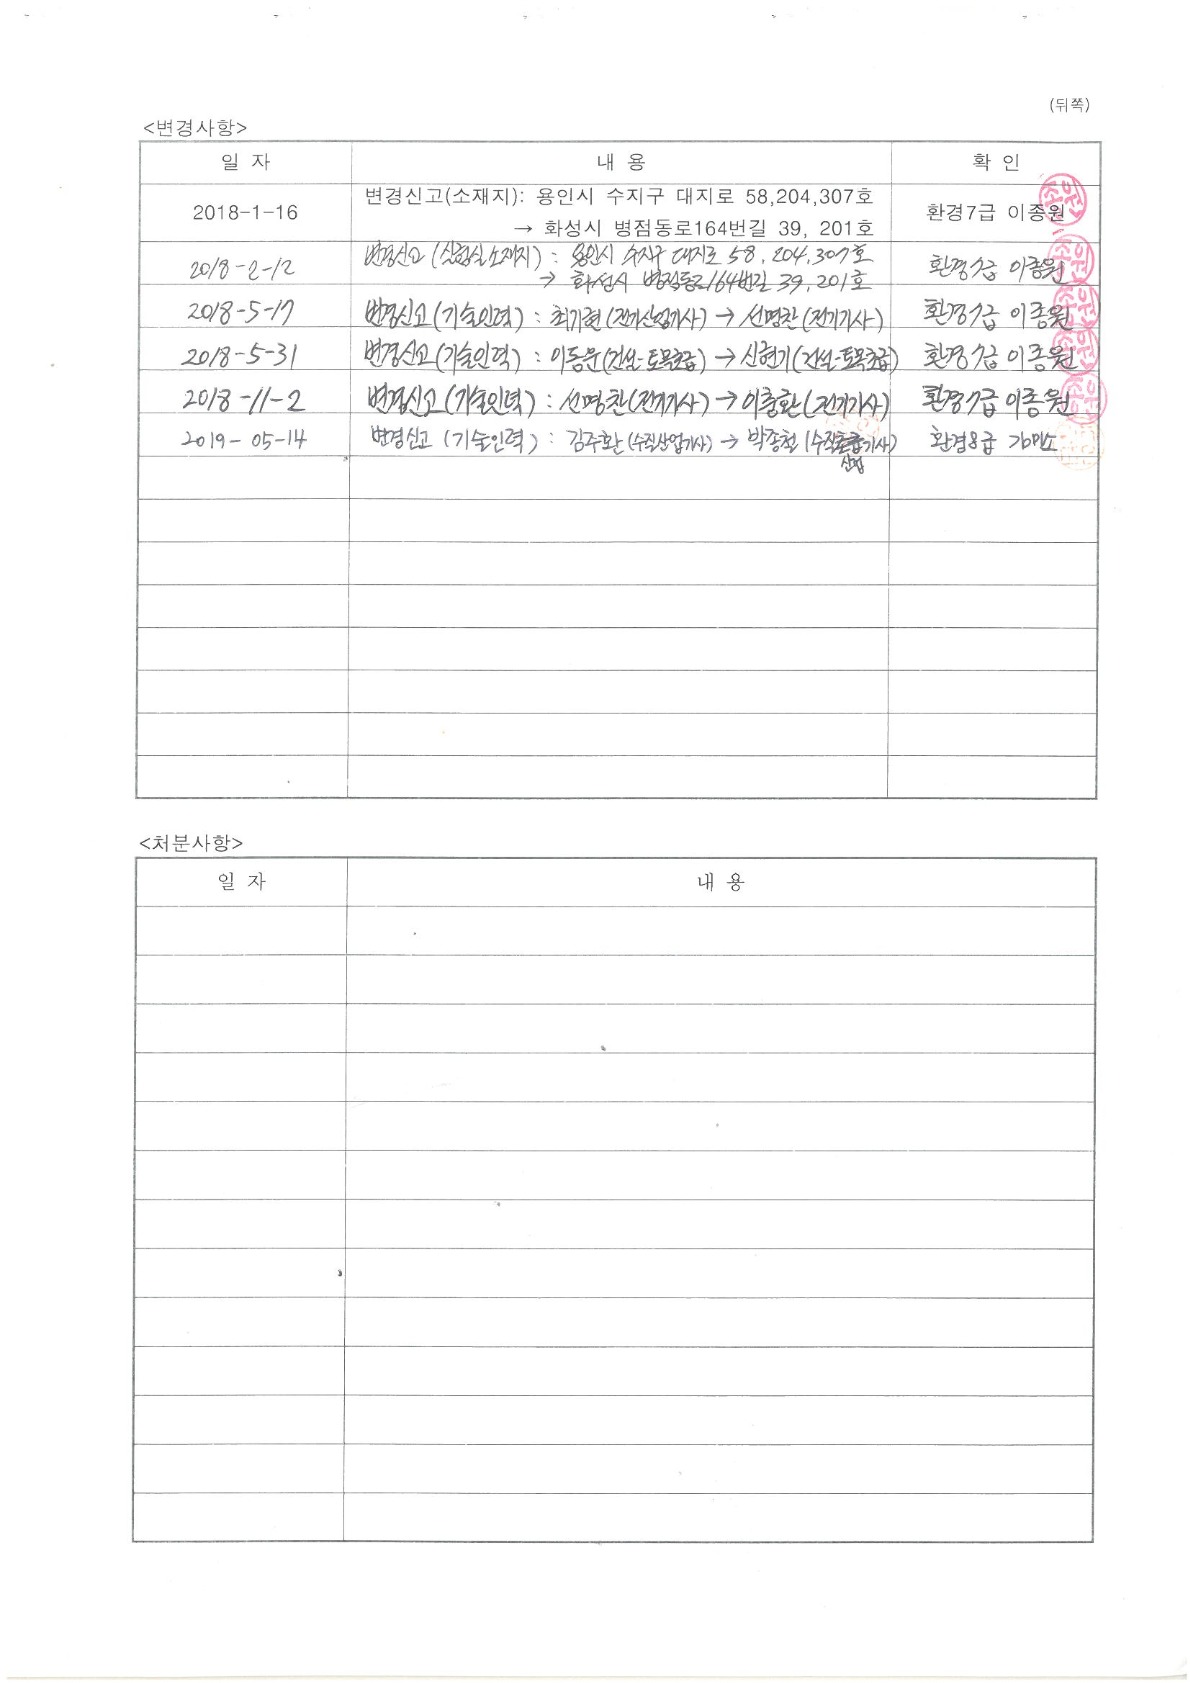 (뒤쪽)
<변경사항>
일 자 내 용 확 인
2018-1-16 변경신고(소재지): 용인시 수지구 대지로 58,204,307호 환경7급 이종원
→ 화성시 병점동로164번길 39, 201호
2018-2-12 변경신고(실험실소재지) : 용인시 수지구 대지로 58, 204, 307호 환경7급 이종원
→ 화성시 병점동로164번길 39, 201호
2018-5-17 변경신고(기술인력) : 최기현(전기산업기사) → 선명찬(전기기사) 환경7급 이종원
2018-5-31 변경신고(기술인력) : 이동문(건설-토목초급) → 신현기(건설-토목초급) 환경7급 이종원
2018-11-2 변경신고(기술인력) : 선명찬(전기기사) → 이충환(전기기사) 환경7급 이종원
2019-05-14 변경신고 (기술인력) : 김주환(수질산업기사) → 박종철(수질 기사) 환경8급
산업
<처분사항>
일 자 내 용